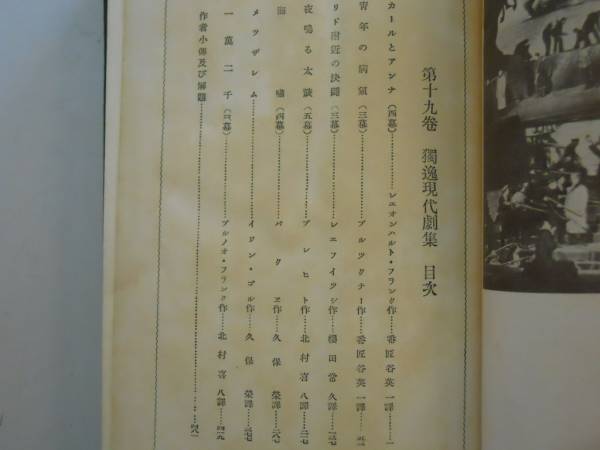 第十九卷 獨逸現代劇集 目次
カールとアンナ（四幕）……レエオンハルト・フランク作……番匠谷英一譯……一
青年の病氣（三幕）……ブルックナー作……番匠谷英一譯……
リド附近の決鬪（三幕）……レエフイツシ作……田常久譯……
夜鳴る太鼓（五幕）……ブレヒト作……北村喜八譯……
海嘯（四幕）……パクヱ作……久保榮譯……
メツザレム……イワン・ゴル作……久保榮譯……
一萬二千（三幕）……ブルノオ・フランク作……北村喜八譯……
作者小傳及び解題……